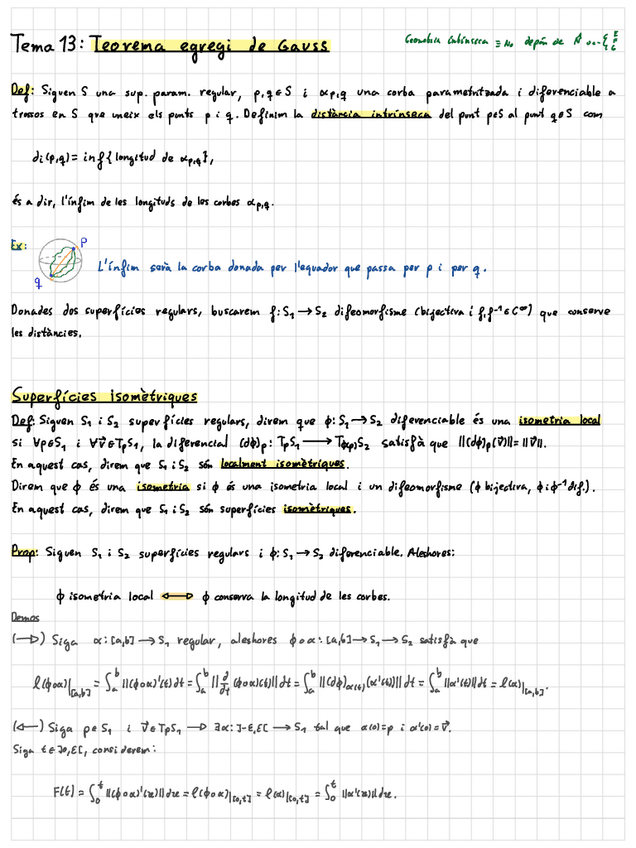 Tema 13: Teorema egregi de Gauss
Geometria intrínseca ≡ No depén de N⃗ sino { E F G
Def: Siguen S una sup. param. regular, p,q ∈ S i αp,q una corba parametritzada i diferenciable a
trossos en S que uneix els punts p i q. Definim la distància intrínseca del punt p∈S al punt q∈S com
di(p,q) = inf{longitud de αp,q},
és a dir, l'ínfim de les longituds de les corbes αp,q.
Ex:
p
q
L'ínfim serà la corba donada per l'equador que passa per p i per q.
Donades dos superfícies regulars, buscarem f: S₁ → S₂ difeomorfisme (bijectiva i f, f⁻¹ ∈ C^∞) que conserve
les distàncies.
Superfícies isomètriques
Def: Siguen S₁ i S₂ superfícies regulars, direm que ϕ: S₁ → S₂ diferenciable és una isometria local
si ∀p∈S₁ i ∀v⃗∈TpS₁, la diferencial (dϕ)p: TpS₁ → Tϕ(p)S₂ satisfà que ||(dϕ)p(v⃗)|| = ||v⃗||.
En aquest cas, direm que S₁ i S₂ són localment isomètriques.
Direm que ϕ és una isometria si ϕ és una isometria local i un difeomorfisme (ϕ bijectiva, ϕ i ϕ⁻¹ dif.).
En aquest cas, direm que S₁ i S₂ són superfícies isomètriques.
Prop: Siguen S₁ i S₂ superfícies regulars i ϕ: S₁ → S₂ diferenciable. Aleshores:
ϕ isometria local ⟺ ϕ conserva la longitud de les corbes.
Demos
(⟹) Siga α: [a,b] → S₁ regular, aleshores ϕ∘α: [a,b] → S₁ → S₂ satisfà que
ℓ(ϕ∘α)|[a,b] = ∫ₐᵇ ||(ϕ∘α)'(t)|| dt = ∫ₐᵇ ||∂/∂t (ϕ∘α)(t)|| dt = ∫ₐᵇ ||(dϕ)α(t)(α'(t))|| dt = ∫ₐᵇ ||α'(t)|| dt = ℓ(α)|[a,b].
(⟸) Siga p∈S₁ i v⃗∈TpS₁ ⟹ ∃α: ]-ε,ε[ → S₁ tal que α(0)=p i α'(0)=v⃗.
Siga t∈]0,ε[, considerem:
F(t) = ∫₀ᵗ ||(ϕ∘α)'(z)|| dz = ℓ(ϕ∘α)|[0,t] = ℓ(α)|[0,t] = ∫₀ᵗ ||α'(z)|| dz.